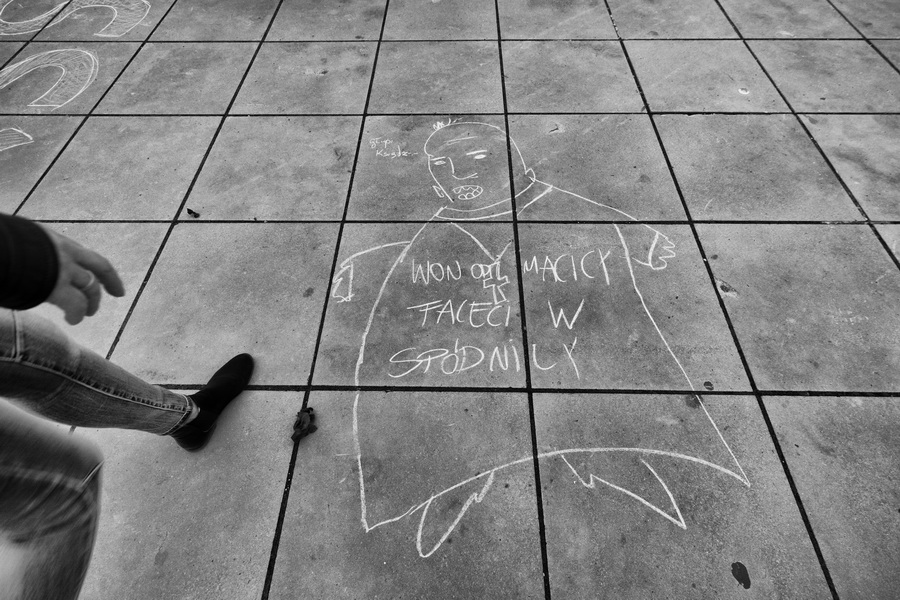 WON OD MACICY
FACECI W
SPÓDNICY